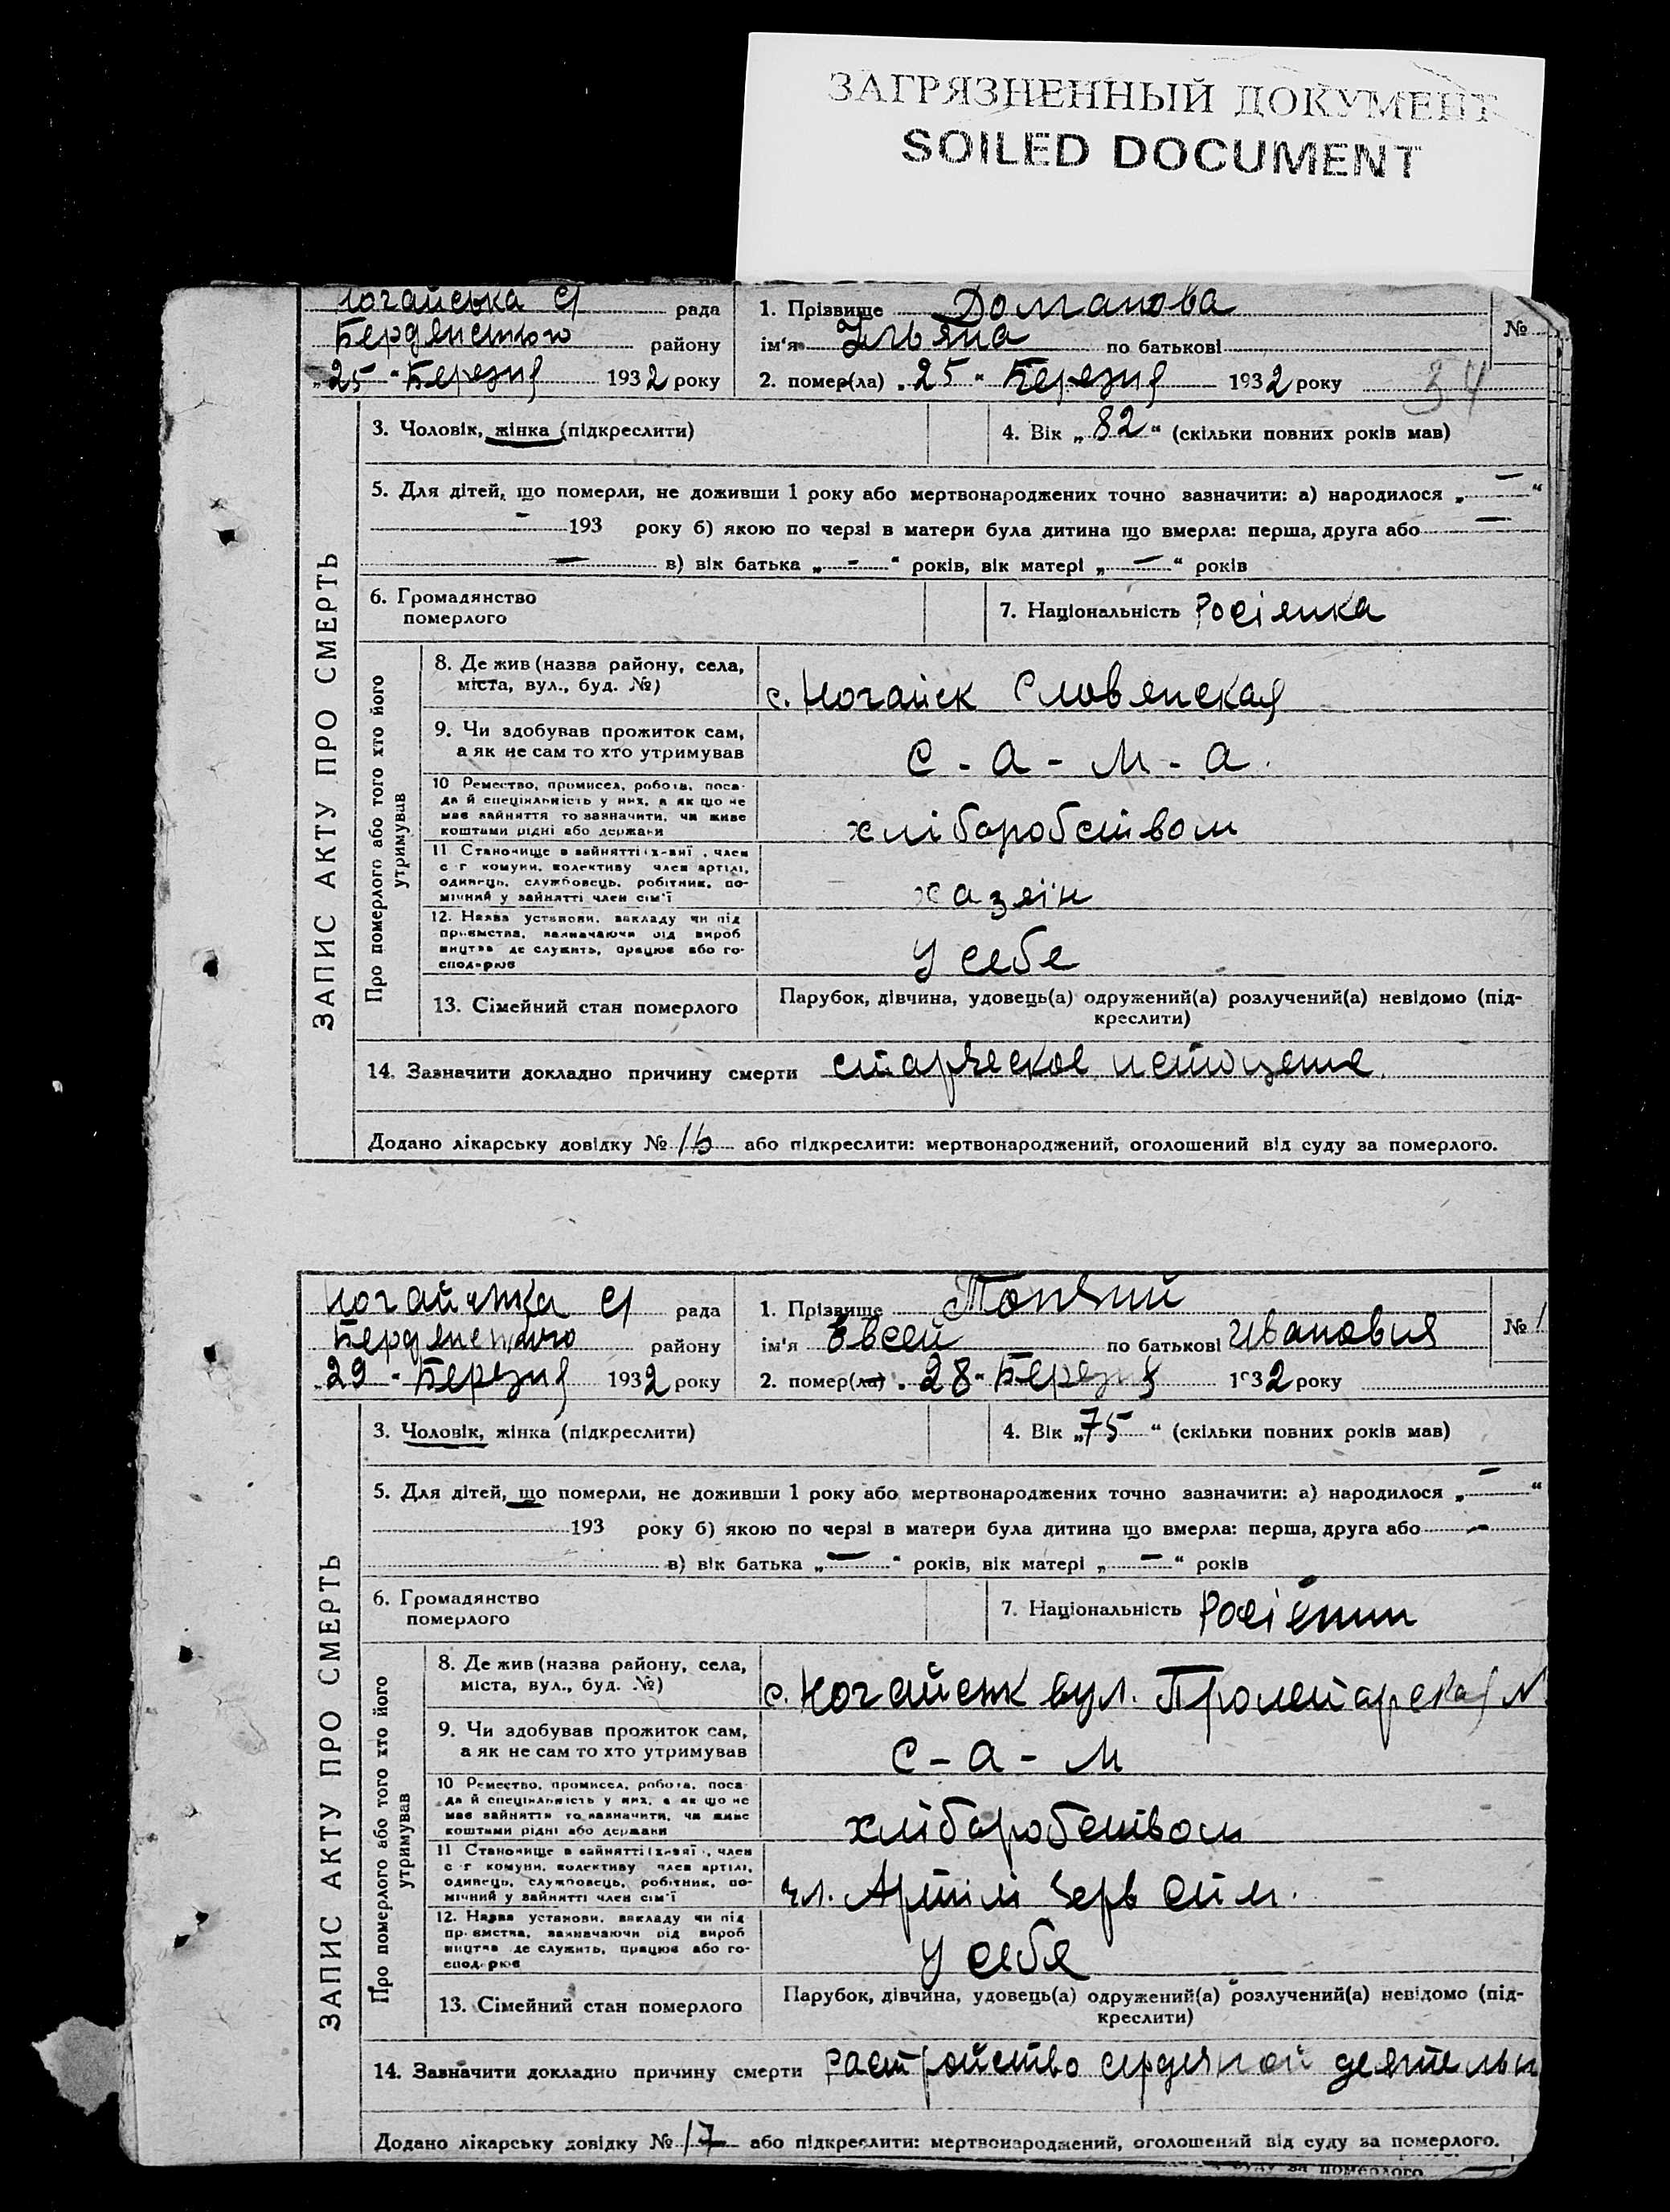 ЗАГРЯЗНЕННЫЙ ДОКУМЕНТ
SOILED DOCUMENT
Ногайська с/ рада
Бердянського району
„25“ Березня 1932 року
1. Прізвище Долганова
ім'я Ульяна по батькові
№
2. помер(ла) „25“ Березня 1932 року
34
ЗАПИС АКТУ ПРО СМЕРТЬ
3. Чоловік, жінка (підкреслити)
4. Вік „82“ (скільки повних років мав)
5. Для дітей, що померли, не доживши 1 року або мертвонароджених точно зазначити: а) народилося „—“
- 193 року б) якою по черзі в матери була дитина що вмерла: перша, друга або —
— в) вік батька „-“ років, вік матері „—“ років
6. Громадянство
померлого
7. Національність Росіянка
Про померлого або того хто його
утримував
8. Де жив (назва району, села,
міста, вул., буд. №)
с. Ногайск Словянская
9. Чи здобував прожиток сам,
а як не сам то хто утримував
С - а - м - а.
10 Ремество, промисел, робота, поса-
да й спеціяльність у них, а як що не
має зайняття то зазначити, чи живе
коштами рідні або держави
хліборобством
11. Становище в зайнятті (х-яні, член
с г комуни, колективу член артілі,
одинець, службовець, робітник, по-
мічний у зайнятті член сім'ї
хазяїн
12. Назва установи, закладу чи під
приємства, зазначаючи рід вироб
ництва де служить, працює або го-
сподарює
У себе
13. Сімейний стан померлого
Парубок, дівчина, удовець(а) одружений(а) розлучений(а) невідомо (під-
креслити)
14. Зазначити докладно причину смерти старческое истощение.
Додано лікарську довідку № 16 або підкреслити: мертвонароджений, оголошений від суду за померлого.
Ногайська с/ рада
Бердянського району
„29“ Березня 1932 року
1. Прізвище
ім'я Евсей по батькові Иванович
№ 1
2. помер(ла) „28“ Березня 1932 року
ЗАПИС АКТУ ПРО СМЕРТЬ
3. Чоловік, жінка (підкреслити)
4. Вік „75“ (скільки повних років мав)
5. Для дітей, що померли, не доживши 1 року або мертвонароджених точно зазначити: а) народилося „—“
193 року б) якою по черзі в матери була дитина що вмерла: перша, друга або —
в) вік батька „—“ років, вік матері „—“ років
6. Громадянство
померлого
7. Національність Росіянин
Про померлого або того хто його
утримував
8. Де жив (назва району, села,
міста, вул., буд. №)
с. Ногайськ вул. Пролетарская N
9. Чи здобував прожиток сам,
а як не сам то хто утримував
С - а - м
10 Ремество, промисел, робота, поса-
да й спеціяльність у них, а як що не
має зайняття то зазначити, чи живе
коштами рідні або держави
хліборобством
11 Становище в зайнятті (х-яні, член
с г комуни, колективу член артілі,
одинець, службовець, робітник, по-
мічний у зайнятті член сім'ї
чл. Артілі Черв
12. Назва установи, закладу чи під
приємства, зазначаючи рід вироб
ництва де служить, працює або го-
сподарює
У себя
13. Сімейний стан померлого
Парубок, дівчина, удовець(а) одружений(а) розлучений(а) невідомо (під-
креслити)
14. Зазначити докладно причину смерти расстройство сердечной деятельн
Додано лікарську довідку № 17 або підкреслити: мертвонароджений, оголошений від суду за померлого.
суду за померлого